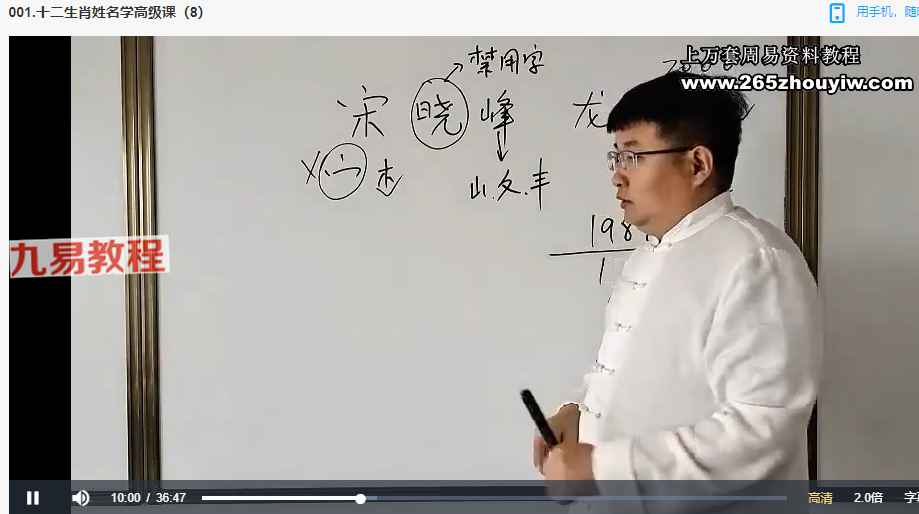 001.十二生肖姓名学高级课（8）
用手机，随
上万套周易资料教程
www.265zhouyiw.com
禁用字
宋 晓 峰 龙
X 宀 木
山.夂.丰
198
1
九易教程
10:00 / 36:47
高清
2.0倍
字